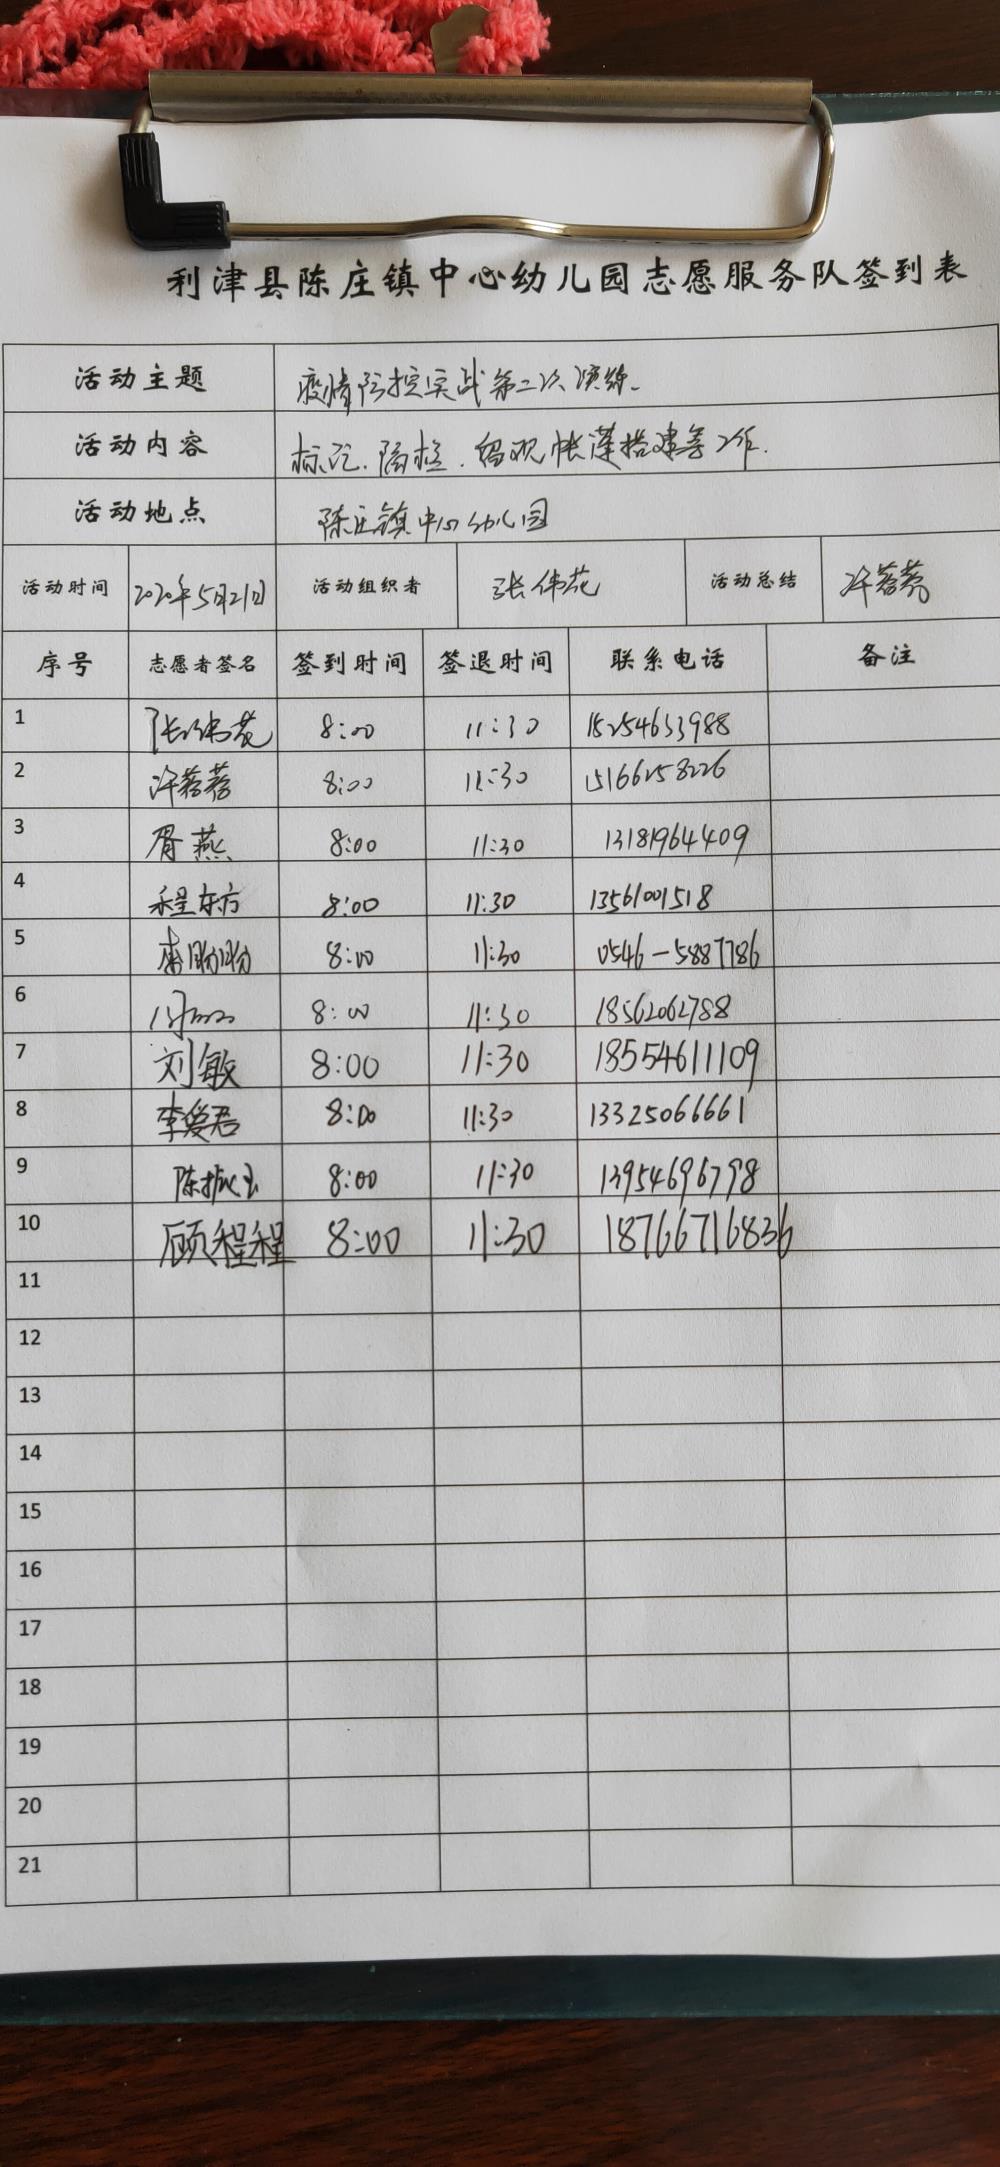 利津县陈庄镇中心幼儿园志愿服务队签到表
活动主题 疫情防控实战第二次演练.
活动内容 标记.隔栏.留观帐篷搭建等工作.
活动地点 陈庄镇中心幼儿园
活动时间 2020年5月21日 活动组织者 张伟花 活动总结 许蓉蓉
序号 志愿者签名 签到时间 签退时间 联系电话 备注
1 张伟花 8:00 11:30 15254653988
2 许蓉蓉 8:00 11:30 15166258226
3 胥燕 8:00 11:30 13181964409
4 程东方 8:00 11:30 13561001518
5 8:00 11:30 0546-5887786
6 8:00 11:30 18562062788
7 刘敏 8:00 11:30 18554611109
8 李爱君 8:00 11:30 13325066661
9 8:00 11:30 13954696798
10 顾程程 8:00 11:30 18766716836
11
12
13
14
15
16
17
18
19
20
21